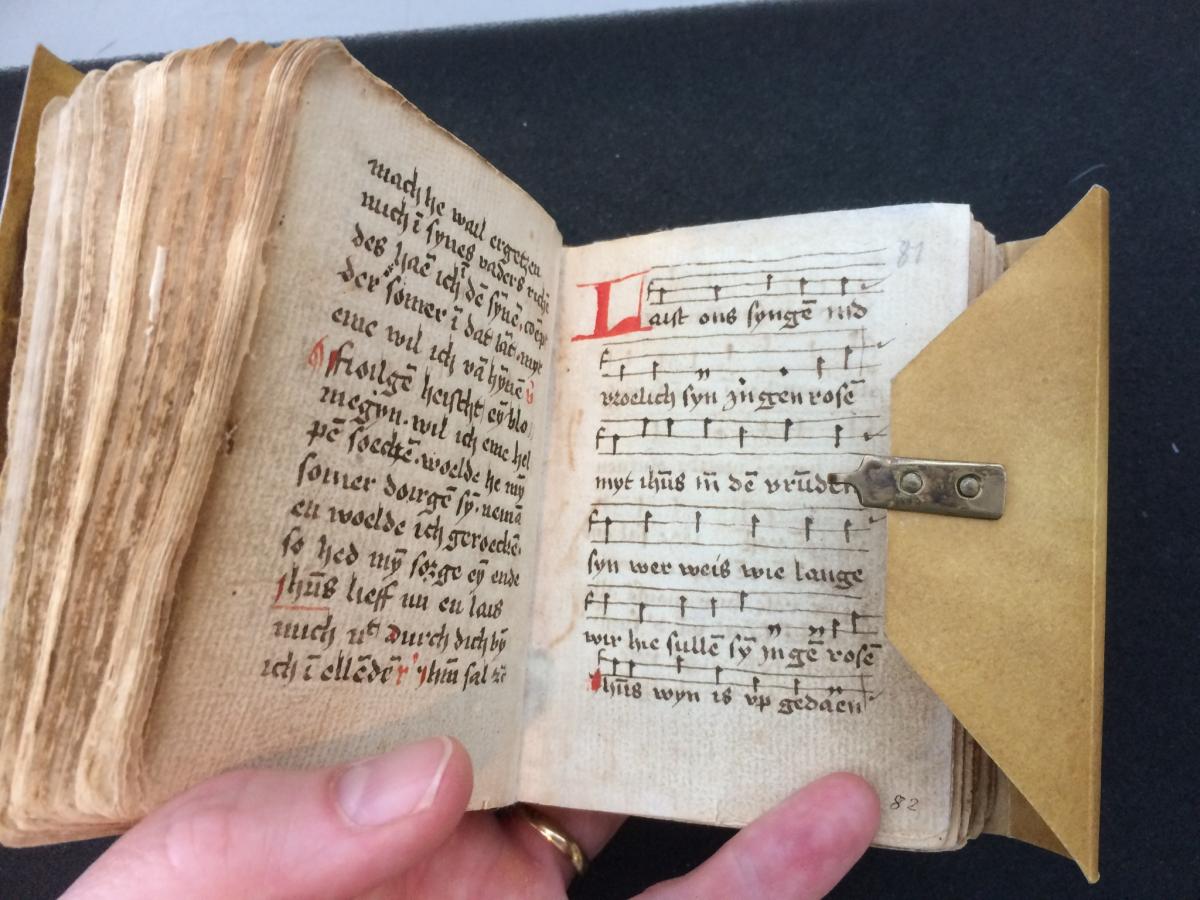 mach he wail ergetzen
mich ī synes vaders rich
des haē ich dē synē
der somer ī dat lāt myt
eme wil ich vā hynē
heischt eȳ blo
megȳn. wil ich eme hel
pē soeckē. woelde he mȳ
somer doirgē sȳ. nemā
en woelde ich geroeckē.
so hed mȳ sorge eȳ ende
Jhūs lieff nu en lais
mich durch dich bȳ
ich ī ellēdē Jhū sal
81
Laist ons syngē ind
vroelich syn in gen rosē
myt ihūs in̄ dē vrūden
syn wer weis wie lange
wir hie sullē sȳ in gē rosē
Jhūs wyn is vp gedaen
82